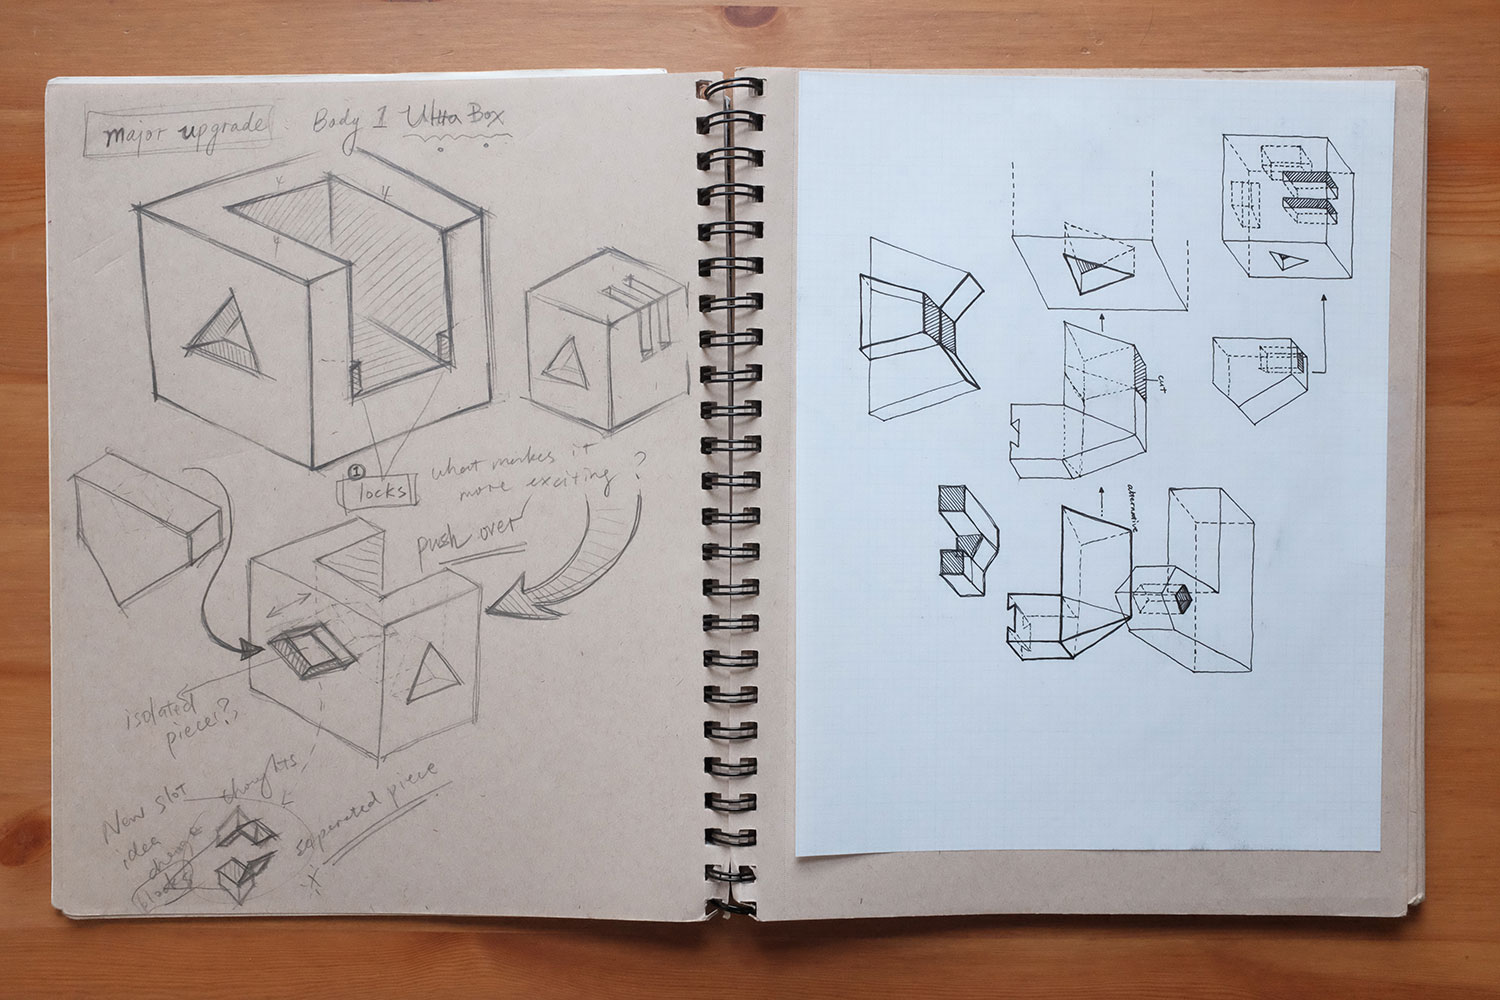 major upgrade
Body 1 Ultra Box
4
4
4
1
locks
what makes it
more exciting ?
push over
isolated
pieces?
New slot
idea
change
blocks
thoughts
seperated piece
cut
alternative